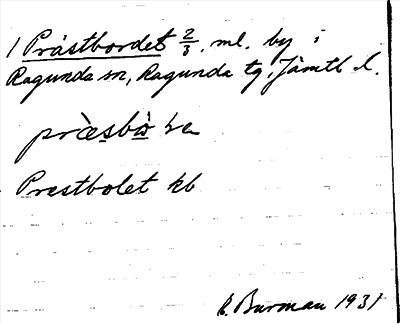 1 Prästbordet 2/3. ml. by i
Ragunda sn, Ragunda tg, Jämtl. l.
Prestbolet kb
E. Burman 1931